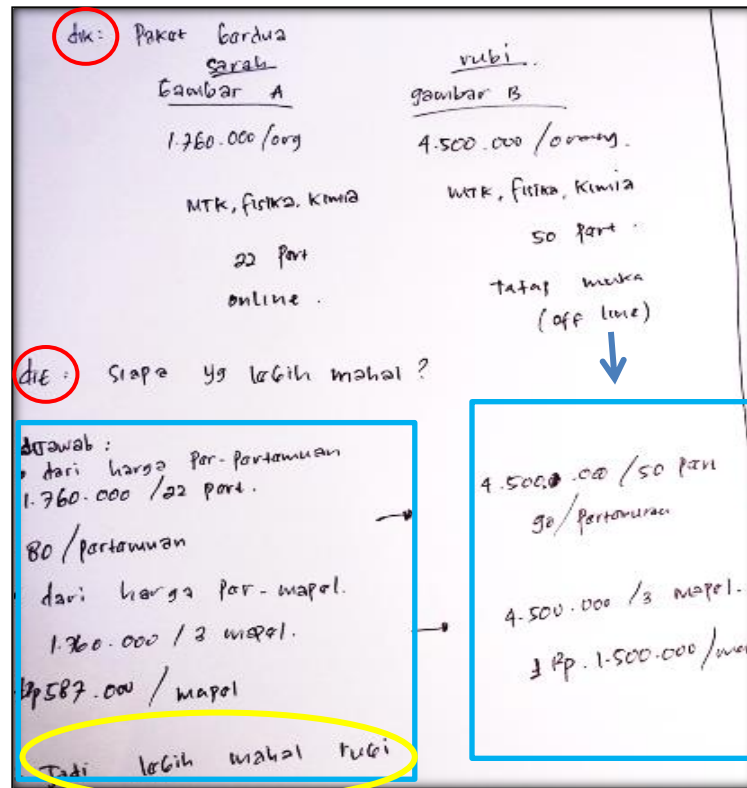 dik: Paket berdua
sarah
Gambar A
1.760.000/org
MTK, fisika, kimia
22 Pert
online.
rubi..
gambar B
4.500.000/orang.
MTK, fisika, kimia
50 Pert.
tatap muka
(off line)
dit: siapa yg lebih mahal?
dijawab:
• dari harga Per-Pertemuan
1.760.000/22 pert.
80/Pertemuan
• dari harga Per-mapel.
1.760.000/3 mapel.
Rp587.000/mapel
Jadi lebih mahal rubi
4.500.000/50 Pert
90/Pertemuan
4.500.000/3 mapel.
Rp.1.500.000/ma